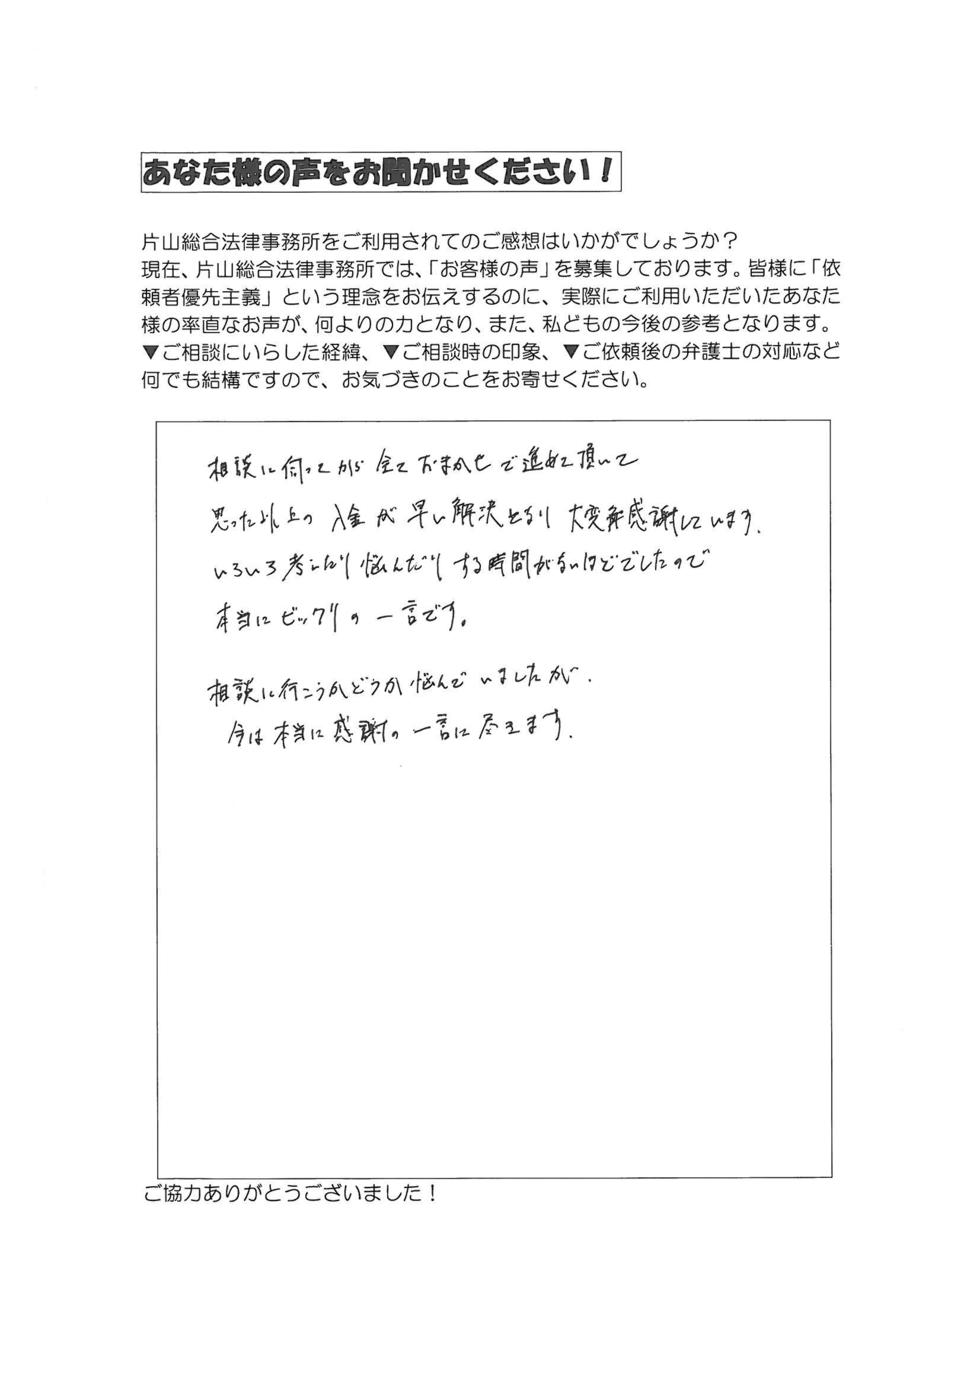 あなた様の声をお聞かせください！
片山総合法律事務所をご利用されてのご感想はいかがでしょうか？
現在、片山総合法律事務所では、「お客様の声」を募集しております。皆様に「依
頼者優先主義」という理念をお伝えするのに、実際にご利用いただいたあなた
様の率直なお声が、何よりの力となり、また、私どもの今後の参考となります。
▼ご相談にいらした経緯、▼ご相談時の印象、▼ご依頼後の弁護士の対応など
何でも結構ですので、お気づきのことをお寄せください。
相談に伺ってから全ておまかせで進めて頂いて
思った以上の入金が早い解決となり大変感謝しています.
いろいろ考えたり悩んだりする時間がないほどでしたので
本当にビックリの一言です。
相談に行こうかどうか悩んでいましたが.
今は本当に感謝の一言に尽きます.
ご協力ありがとうございました！